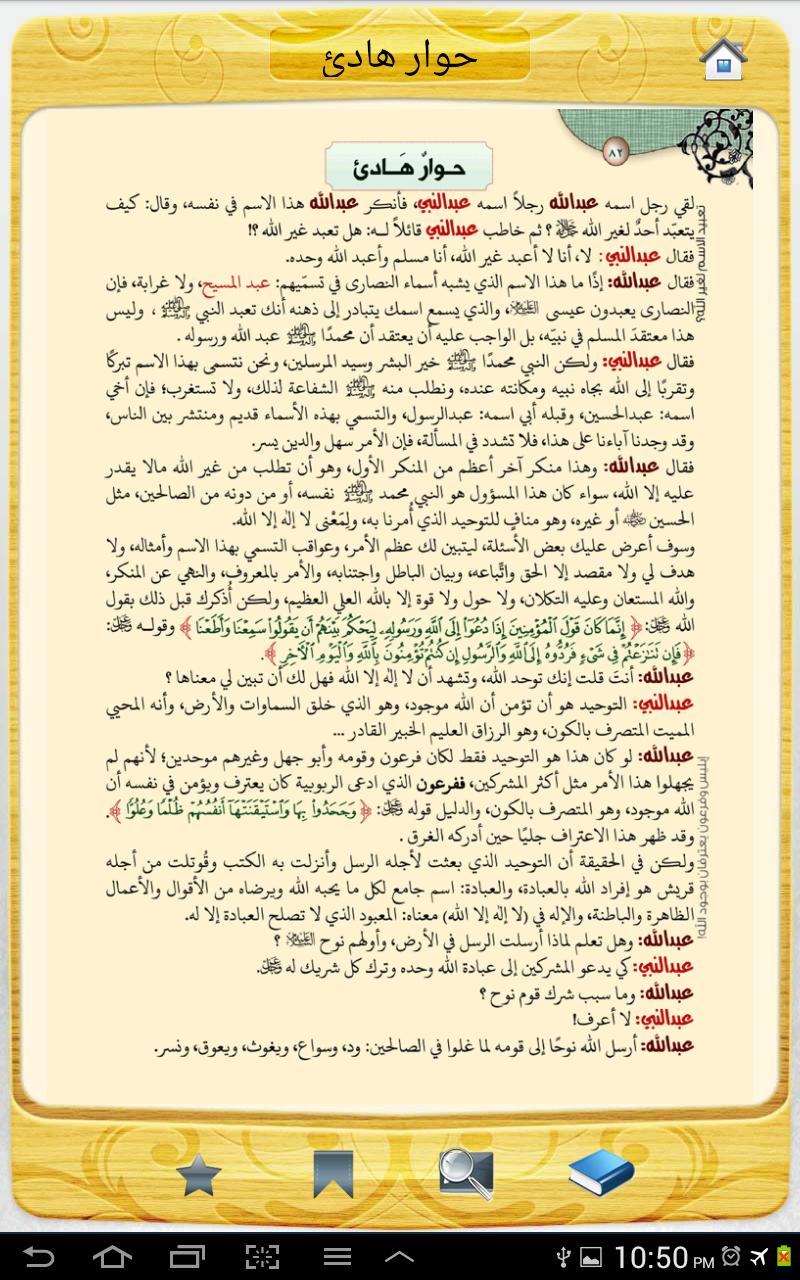 حوار هادئ
٨٢
حـوارٌ هَـادئ
لقي رجل اسمه عبدالله رجلاً اسمه عبدالنبي، فأنكر عبدالله هذا الاسم في نفسه، وقال: كيف
يتعبّد أحدٌ لغير الله ﷻ ؟ ثم خاطب عبدالنبي قائلاً لـه: هل تعبد غير الله ؟!
فقال عبدالنبي: لا، أنا لا أعبد غير الله، أنا مسلم وأعبد الله وحده.
فقال عبدالله: إذًا ما هذا الاسم الذي يشبه أسماء النصارى في تسمّيهم: عبد المسيح، ولا غرابة، فإن
النصارى يعبدون عيسى عليه السلام، والذي يسمع اسمك يتبادر إلى ذهنه أنك تعبد النبي ﷺ ، وليس
هذا معتقدَ المسلم في نبيّه، بل الواجب عليه أن يعتقد أن محمدًا ﷺ عبد الله ورسوله .
تعبيد الاسم لغير الله؟
فقال عبدالنبي: ولكن النبي محمدًا ﷺ خير البشر وسيد المرسلين، ونحن نتسمى بهذا الاسم تبركًا
وتقربًا إلى الله بجاه نبيه ومكانته عنده، ونطلب منه ﷺ الشفاعة لذلك، ولا تستغرب؛ فإن أخي
اسمه: عبدالحسين، وقبله أبي اسمه: عبدالرسول، والتسمي بهذه الأسماء قديم ومنتشر بين الناس،
وقد وجدنا آباءنا على هذا، فلا تشدد في المسألة، فإن الأمر سهل والدين يسر.
فقال عبدالله: وهذا منكر آخر أعظم من المنكر الأول، وهو أن تطلب من غير الله مالا يقدر
عليه إلا الله، سواء كان هذا المسؤول هو النبي محمد ﷺ نفسه، أو من دونه من الصالحين، مثل
الحسين رضي الله عنه أو غيره، وهو منافٍ للتوحيد الذي أُمرنا به، ولِمَعْنى لا إله إلا الله.
وسوف أعرض عليك بعض الأسئلة، ليتبين لك عظم الأمر، وعواقب التسمي بهذا الاسم وأمثاله، ولا
هدف لي ولا مقصد إلا الحق واتّباعه، وبيان الباطل واجتنابه، والأمر بالمعروف، والنهي عن المنكر،
والله المستعان وعليه التكلان، ولا حول ولا قوة إلا بالله العلي العظيم، ولكن أُذكرك قبل ذلك بقول
الله عز وجل: ﴿ إِنَّمَا كَانَ قَوْلَ ٱلْمُؤْمِنِينَ إِذَا دُعُوٓا۟ إِلَى ٱللَّهِ وَرَسُولِهِۦ لِيَحْكُمَ بَيْنَهُمْ أَن يَقُولُوا۟ سَمِعْنَا وَأَطَعْنَا ﴾ وقولـه عز وجل:
﴿ فَإِن تَنَٰزَعْتُمْ فِى شَىْءٍ فَرُدُّوهُ إِلَى ٱللَّهِ وَٱلرَّسُولِ إِن كُنتُمْ تُؤْمِنُونَ بِٱللَّهِ وَٱلْيَوْمِ ٱلْأَخِرِ ﴾.
عبدالله: أنتَ قلت إنك توحد الله، وتشهد أن لا إله إلا الله فهل لك أن تبين لي معناها ؟
عبدالنبي: التوحيد هو أن تؤمن أن الله موجود، وهو الذي خلق السماوات والأرض، وأنه المحيي
المميت المتصرف بالكون، وهو الرزاق العليم الخبير القادر ...
عبدالله: لو كان هذا هو التوحيد فقط لكان فرعون وقومه وأبو جهل وغيرهم موحدين؛ لأنهم لم
يجهلوا هذا الأمر مثل أكثر المشركين، ففرعون الذي ادعى الربوبية كان يعترف ويؤمن في نفسه أن
الله موجود، وهو المتصرف بالكون، والدليل قوله عز وجل: ﴿ وَجَحَدُوا۟ بِهَا وَٱسْتَيْقَنَتْهَآ أَنفُسُهُمْ ظُلْمًا وَعُلُوًّا ﴾.
وقد ظهر هذا الاعتراف جليًا حين أدركه الغرق .
إبليس وفرعون يعترفان بوجود الله!
ولكن في الحقيقة أن التوحيد الذي بعثت لأجله الرسل وأنزلت به الكتب وقُوتلت من أجله
قريش هو إفراد الله بالعبادة، والعبادة: اسم جامع لكل ما يحبه الله ويرضاه من الأقوال والأعمال
الظاهرة والباطنة، والإله في (لا إله إلا الله) معناه: المعبود الذي لا تصلح العبادة إلا له.
عبدالله: وهل تعلم لماذا أرسلت الرسل في الأرض، وأولهم نوح عليه السلام ؟
عبدالنبي: كي يدعو المشركين إلى عبادة الله وحده وترك كل شريك له عز وجل.
عبدالله: وما سبب شرك قوم نوح ؟
عبدالنبي: لا أعرف!
عبدالله: أرسل الله نوحًا إلى قومه لما غلوا في الصالحين: ود، وسواع، ويغوث، ويعوق، ونسر.
10:50 PM